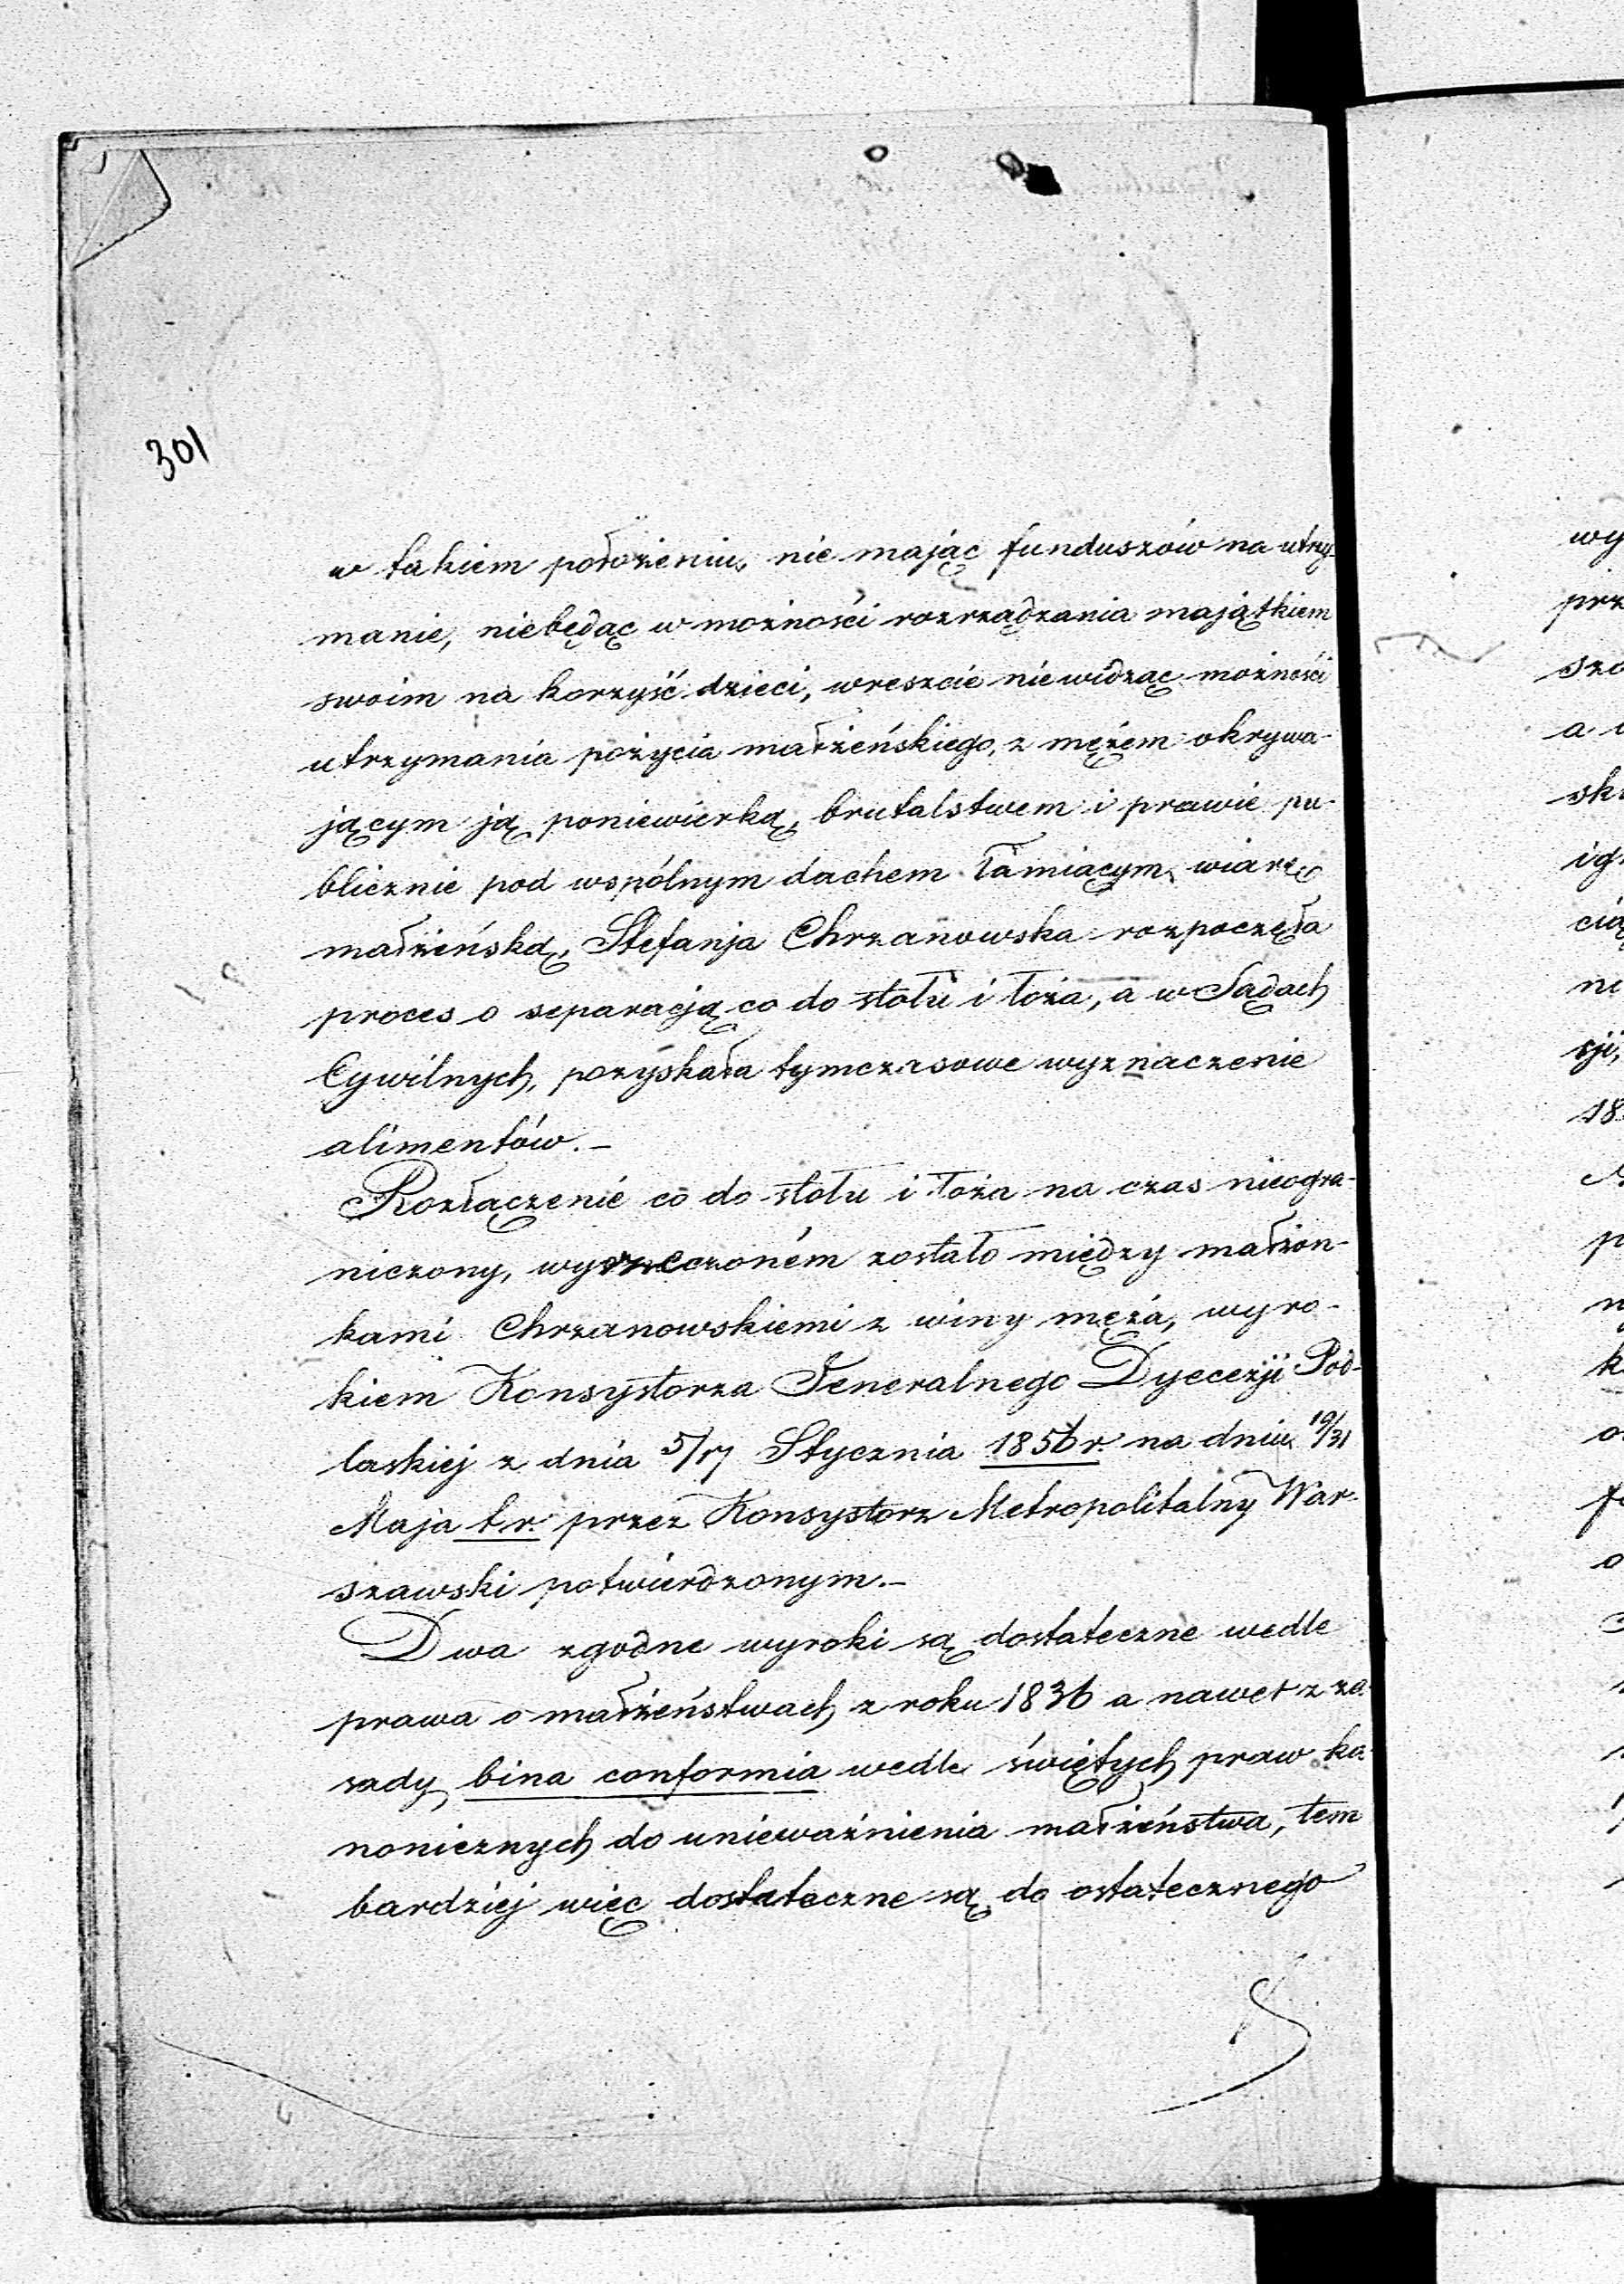 301
w takiem położeniu, nie mając funduszów na utrzy-
manie, niebędąc w możności rozrządzania majątkiem
swoim na korzyść dzieci, wreszcie niewidząc możności
utrzymania pożycia małżeńskiego, z mężem okrywa-
jącym ją poniewierką, brutalstwem i prawie pu-
blicznie pod wspólnym dachem łamiącym wiarę
małżeńską, Stefanja Chrzanowska rozpoczęła
proces o separacją co do stołu i łoża, a w Sądach
Cywilnych, pozyskała tymczasowe wyznaczenie
alimentów.–
Rozłączenie co do stołu i łoża na czas nieogra-
niczony, wyrzeczoném zostało między małżon-
kami Chrzanowskiemi z winy męża, wyro-
kiem Konsystorza Generalnego Dyecezji Pod-
laskiej z dnia 5/17 Stycznia 1856 r. na dniu 19/31
Maja t.r. przez Konsystorz Metropolitalny War-
szawski potwierdzonym.–
Dwa zgodne wyroki są dostateczne wedle
prawa o małżeństwach z roku 1836 a nawet z za-
sady bina conformia wedle świętych praw ka-
nonicznych do unieważnienia małżeństwa, tem
bardziej więc dostateczne są do ostatecznego
wy
prz
szo
a
sk
ig
cią
ni
sji,
18
p
k
o
f
o